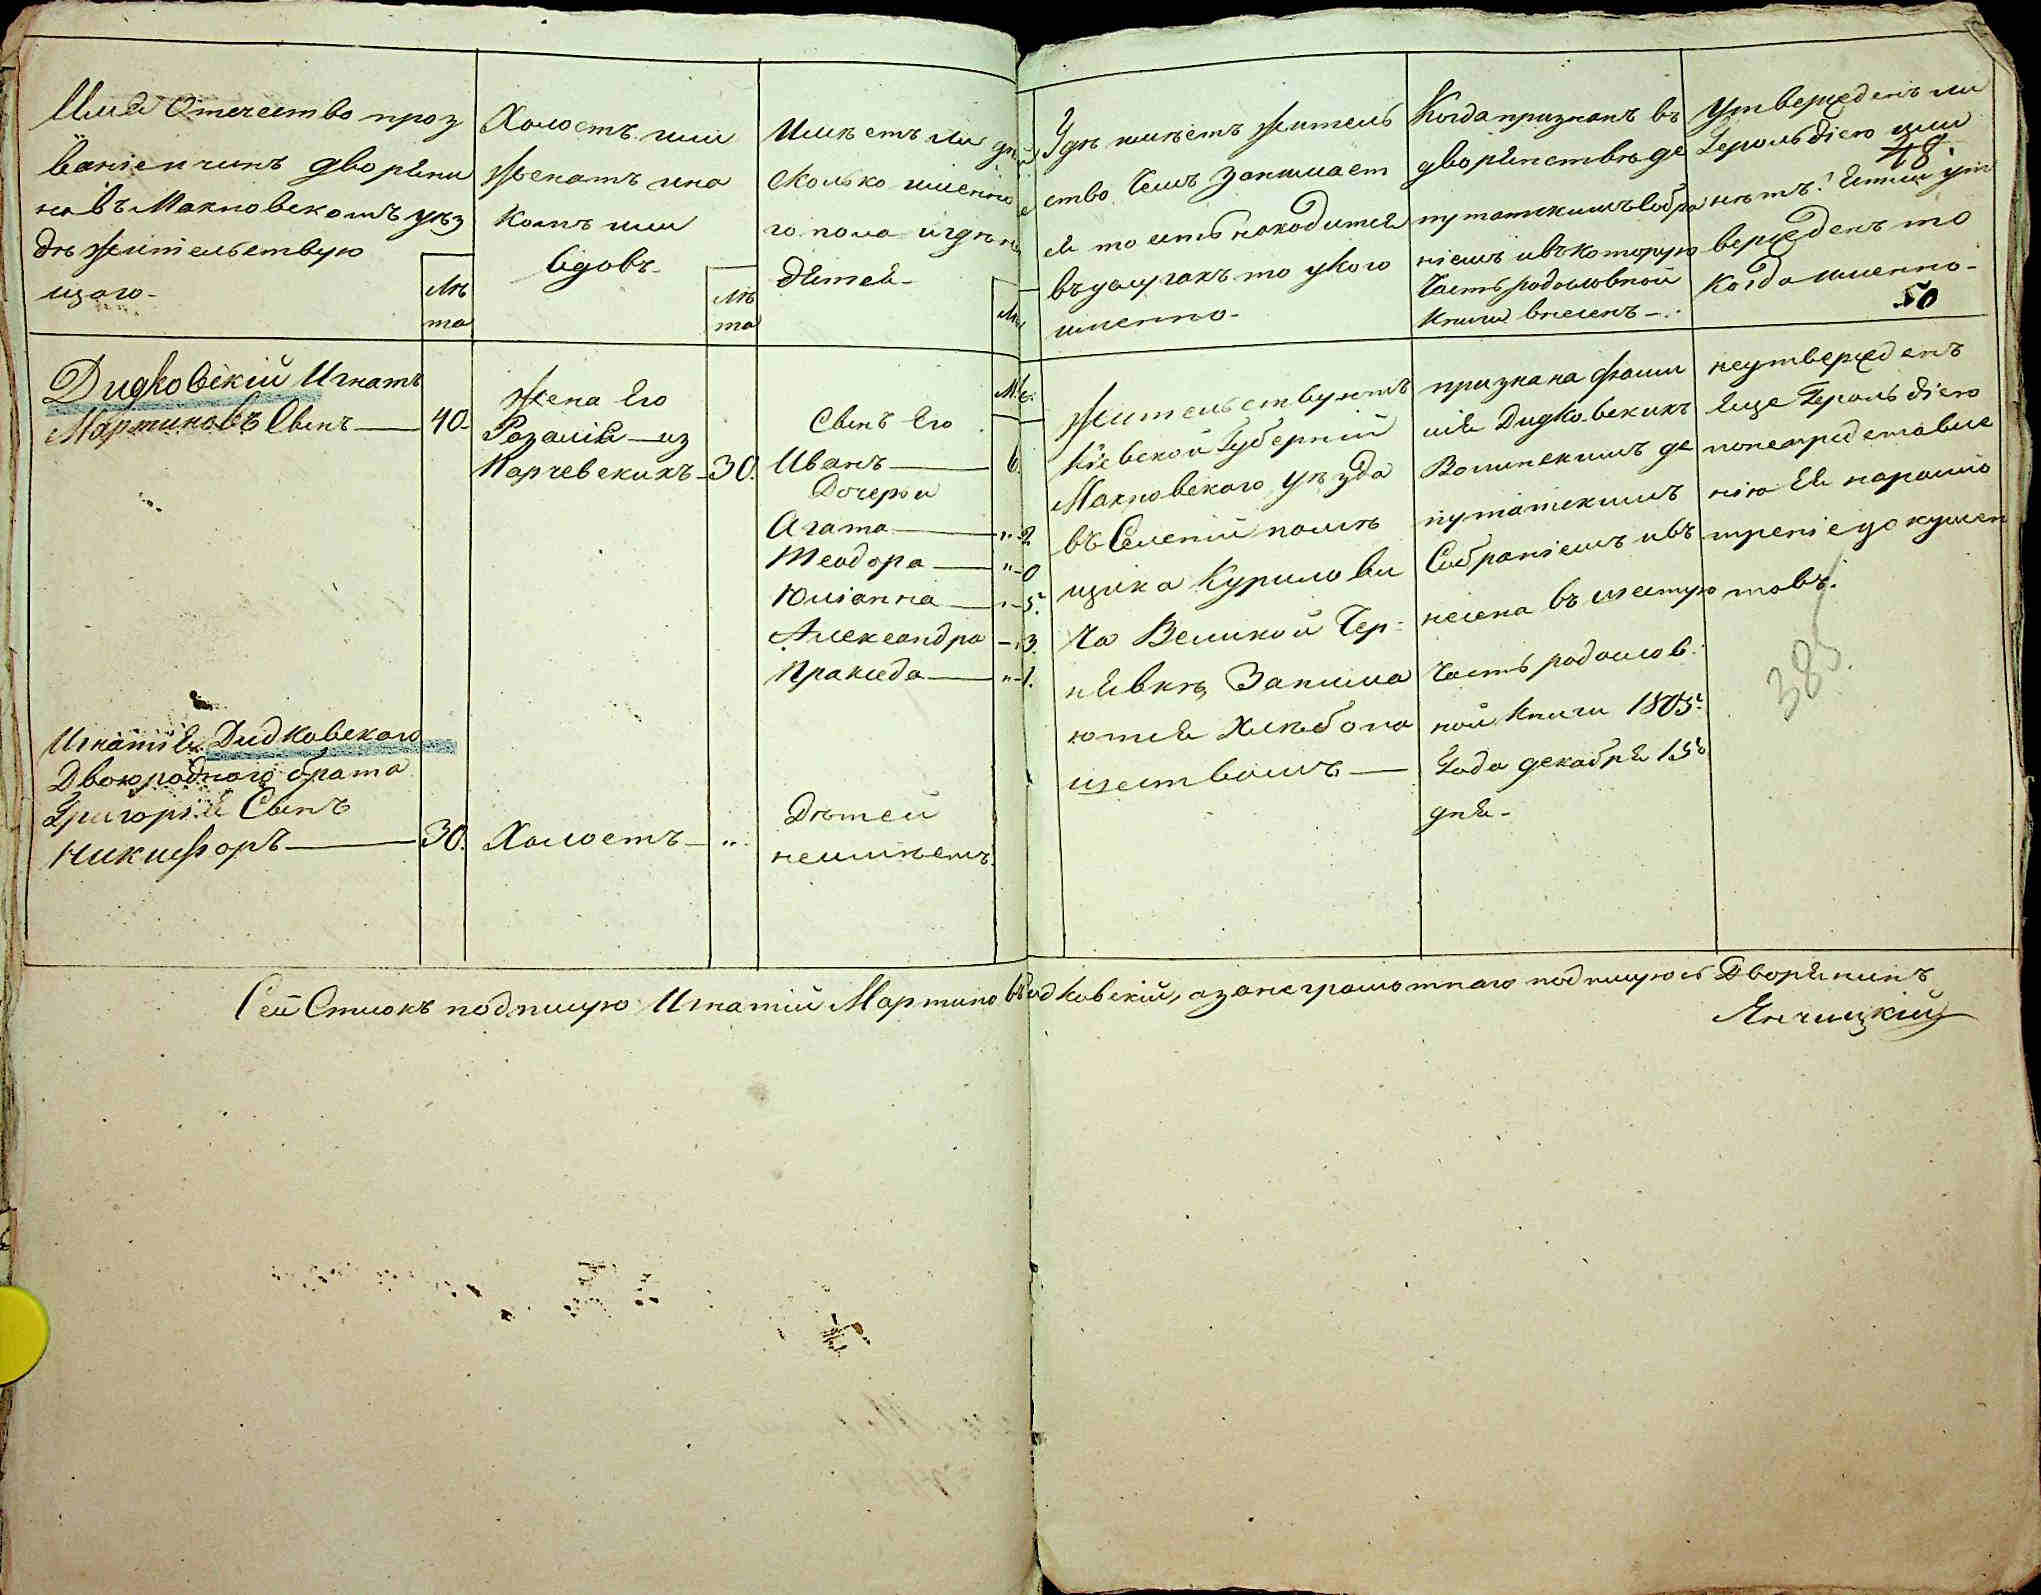 Имя Отчество проз
ваніе и чинъ дворяни
на въ Махновскомъ уѣз
дѣ жительствую
щаго-
Лѣ
та
Холостъ или
женатъ и на
комъ или
вдовъ-
Лѣ
та
Имѣетъ ли дѣ
сколько имянно
го пола и гдѣ
дѣтей-
Гдѣ имѣетъ житель
ство Чемъ занимает
ся то есть находится
въ услугахъ то у кого
именно-
Когда признанъ въ
дворянствѣ де
путатскимъ Собра
ніемъ и въ которую
Часть родословной
Книги внесенъ-
Утвержденъ ли
Герольдіею или
48.
нѣтъ? Если ут
вержденъ то
Когда именно-
50
Дидковскій Игнатъ
Мартиновъ Сынъ 40.
Жена Его
Розалія из
Карчевскихъ 30.
Сынъ Его
Иванъ 6.
Дочери
Агата " 2
Теодора " 0
Юліанна " 5.
Александра " 3.
Пракседа " 1.
Жительствуютъ
Кіевской Губерніи
Махновскаго уѣзда
въ Селеніи помѣ
щика Курилови
ча Великой Чер-
нявкѣ, Занима
ются Хлѣбопа
шествомъ
признана фами
лія Дидковскихъ
Волынскимъ де
путатскимъ
Собраніемъ и въ
несена въ шестую
Часть родослов-
ной Книги 1803.
Года декабря 15
дня-
неутвержденъ
Еще Герольдіею
по непредставле
нію Ея на разсмо
треніе докумен
товъ.
385.
Игнатія Дидковскаго
Двоюроднаго брата
Григорія Сынъ
Никифоръ 30.
Холостъ "
Дѣтей
неимѣетъ.
Сей Списокъ подпишу Игнатій Мартиновъ Дидковскій, а за неграмотнаго подпишусь Дворянинъ
Янчицкій